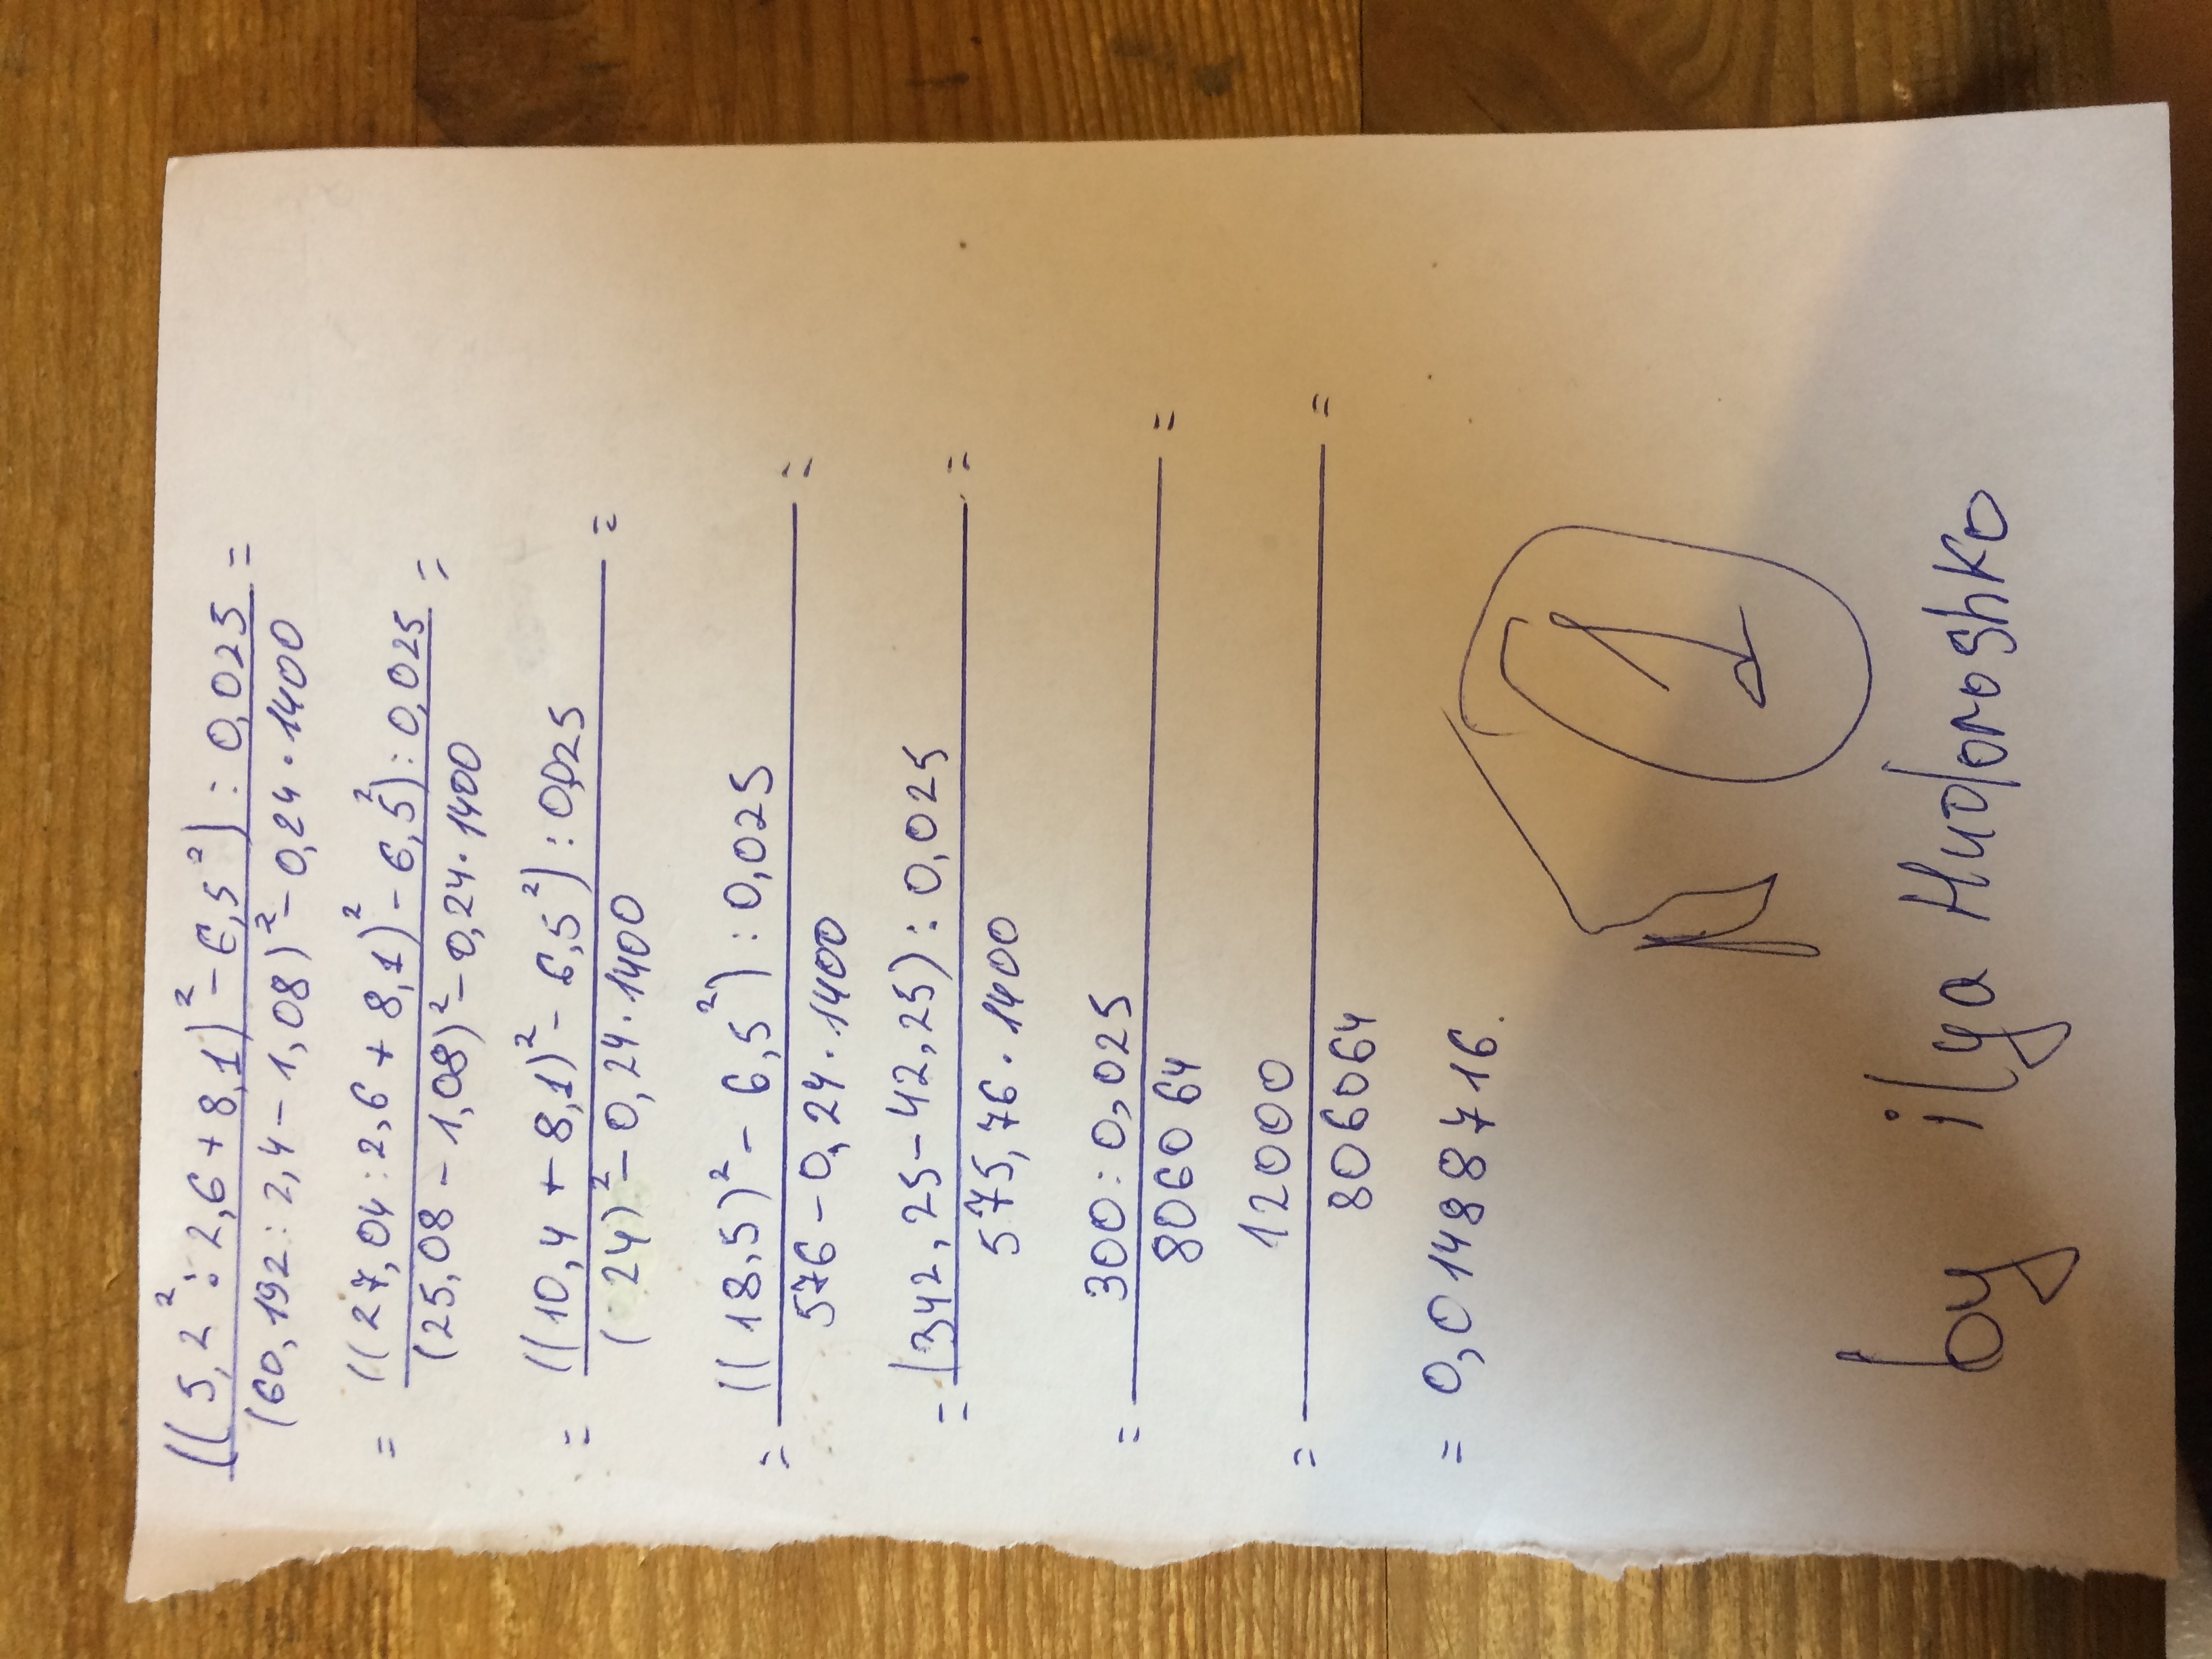 ((5,2² : 2,6 + 8,1)² - 6,5²) : 0,025 =
(60,192 : 2,4 - 1,08)² - 0,24 · 1400
= ((27,04 : 2,6 + 8,1)² - 6,5²) : 0,025 =
(25,08 - 1,08)² - 0,24 · 1400
= ((10,4 + 8,1)² - 6,5²) : 0,025 =
(24)² - 0,24 · 1400
= ((18,5)² - 6,5²) : 0,025 =
576 - 0,24 · 1400
= (342,25 - 42,25) : 0,025 =
575,76 · 1400
= 300 : 0,025 =
806064
= 12000 =
806064
= 0,01488716.
1
by ilya Hudoroshko